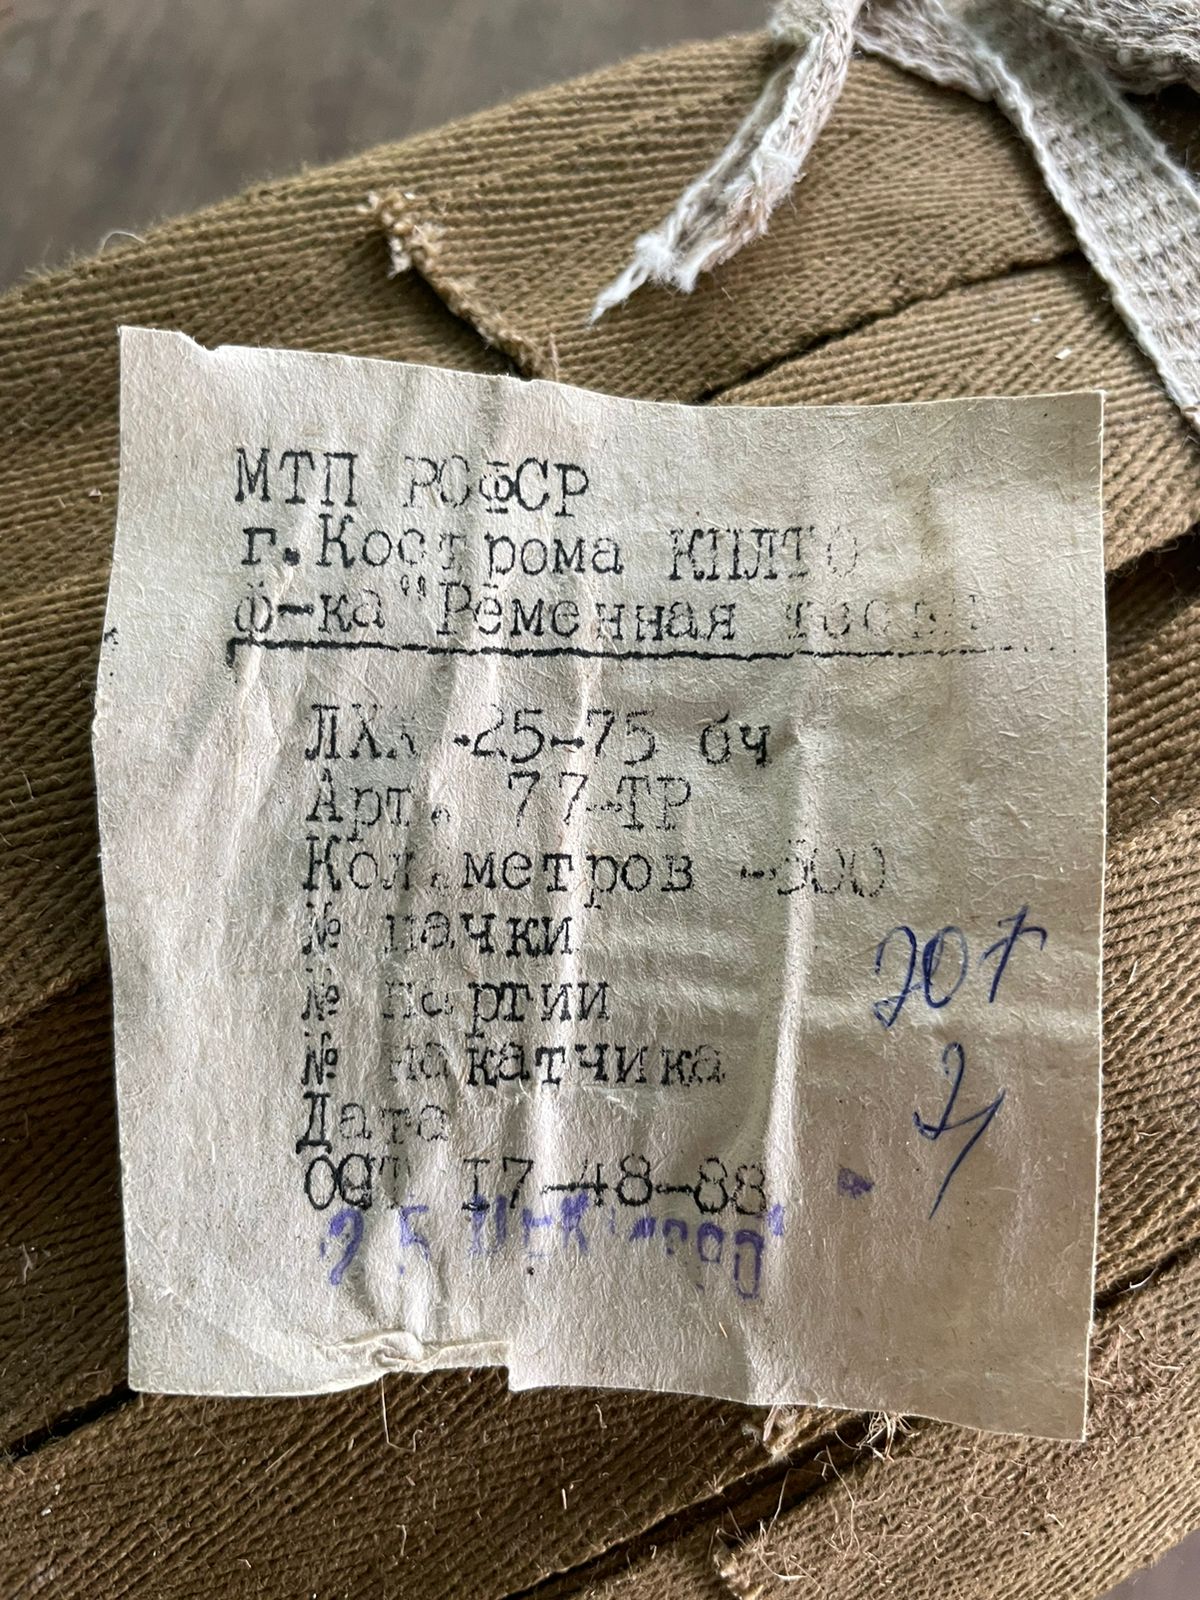 МТП РСФСР
г.Кострома КПЛТО
ф-ка "Ременная
-25-75 бч
Арт. 77-ТР
Кол. метров -500
№ пачки
№ партии
№ накатчика
Дата
ОСТ 17-48-88
25